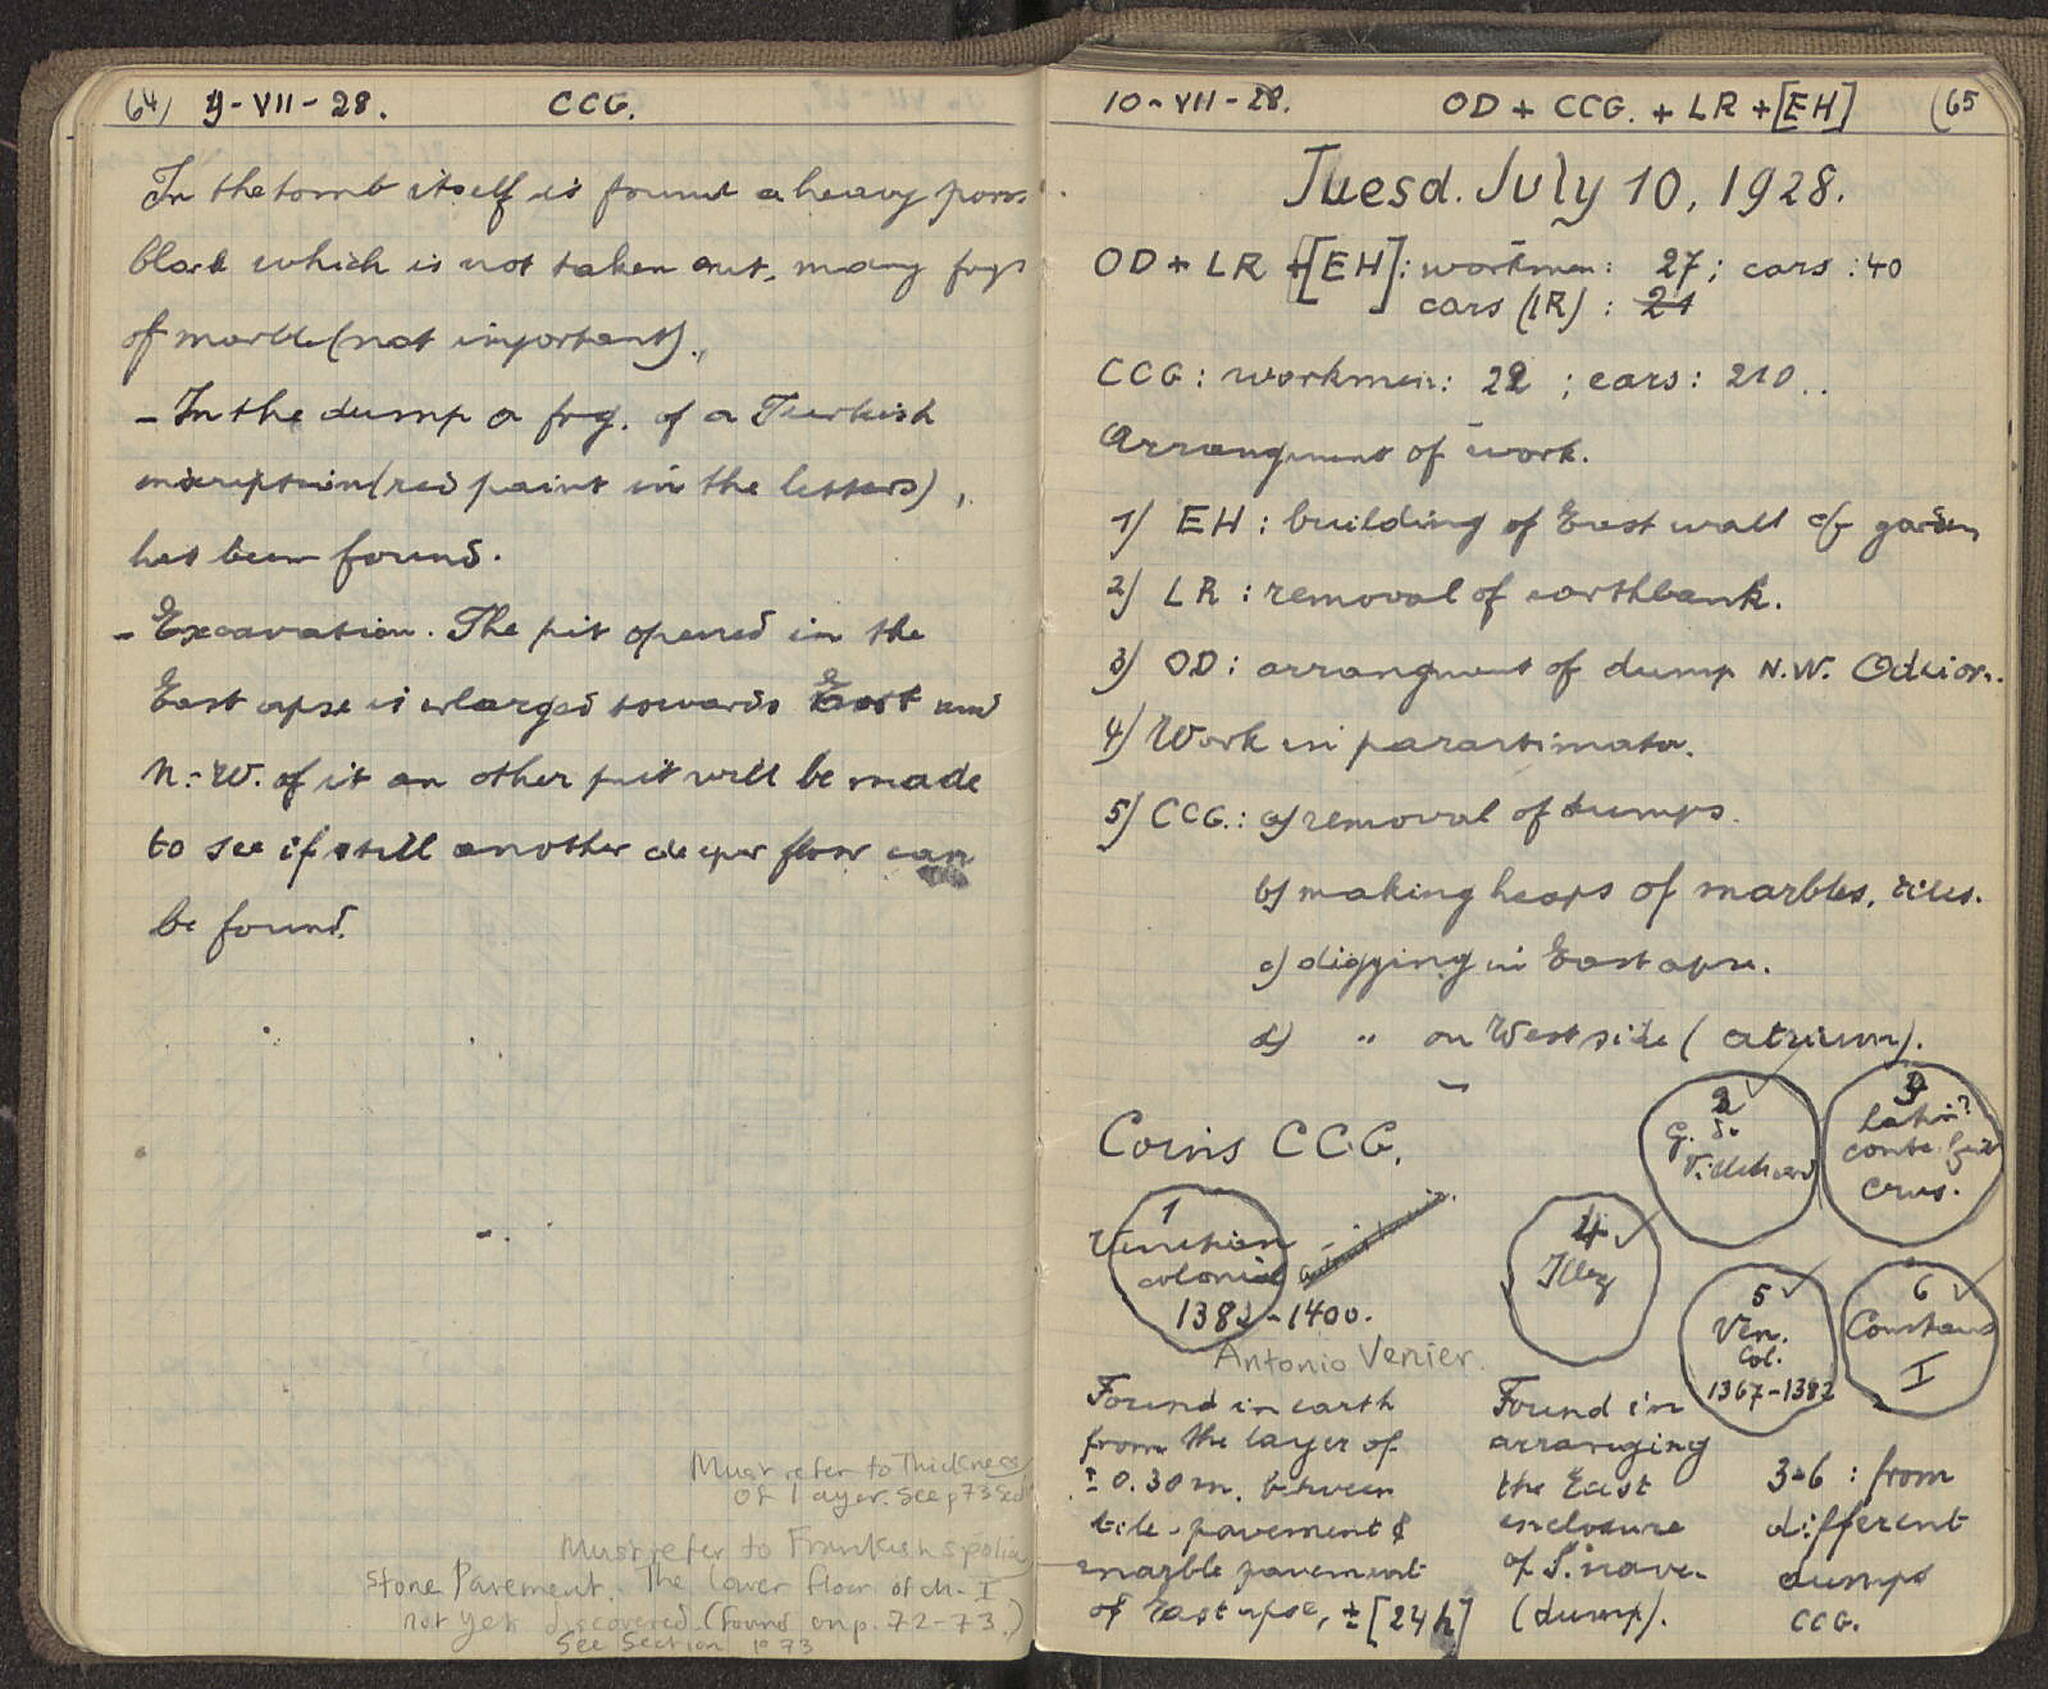 64) 9-VII-28. CCG.
In the tomb itself is found a heavy poros
block which is not taken out, many frgs
of marble (not important).
- In the dump a frg. of a Turkish
inscription (red paint in the letters),
has been found.
- Excavation. The pit opened in the
East apse is enlarged towards East and
N.-W. of it an other pit will be made
to see if still another deeper floor can
be found.
Must refer to Thickness
of layer. See p 73
Must refer to Frankish spolia
stone Pavement. The lower floor of ch. I
not yet discovered (found on p. 72-73.)
See Section p 73
10-VII-28. OD + CCG. + LR + [EH] (65
Tuesd. July 10, 1928.
OD + LR + [EH]: workmen: 27; cars: 40
cars (LR): 21
CCG: workmen: 22; cars: 210..
Arrangment of work.
1) EH: building of East wall of garden
2) LR: removal of earthbank.
3) OD: arrangment of dump N.W. Odeion.
4) Work in parartimata.
5) CCG.: a) removal of dumps.
b) making heaps of marbles, tiles.
c) digging in East apse.
d) " on West side (atrium).
Coins CCG.
1
Venetian
colonial
1382-1400.
Antonio Venier.
2
G. de
Villehard
3
Latin?
Crus.
4
Illeg
5
Ven.
Col.
1367-1382
6
Constans
I
Found in earth
from the layer of
± 0.30 m. between
tile-pavement &
marble pavement
of East apse, ± [24h]
Found in
arranging
the East
enclosure
of S. nave.
(dump).
3-6: from
different
dumps
CCG.